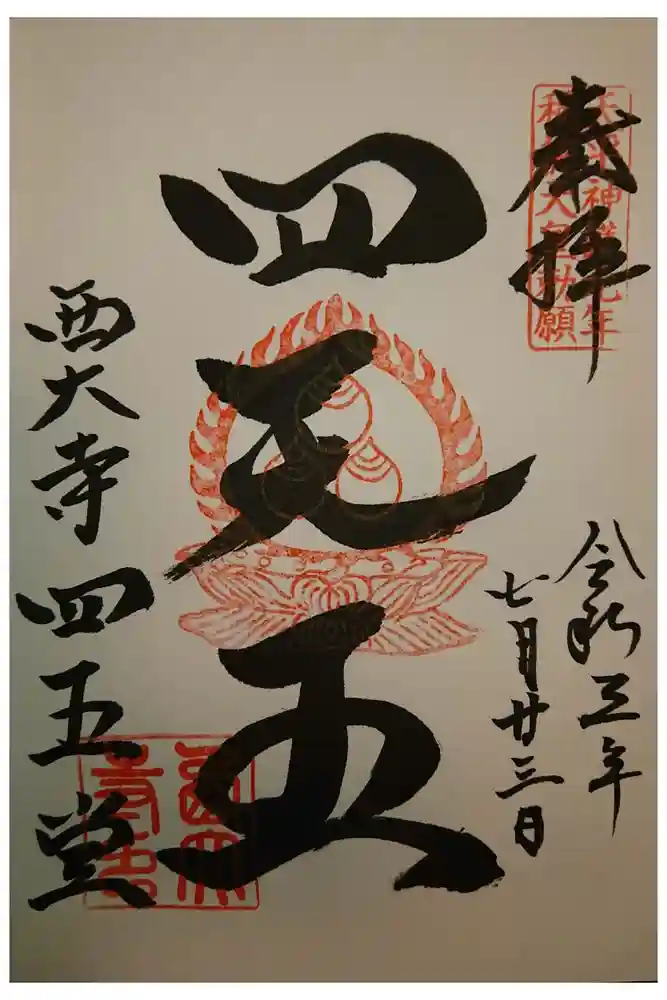 奉拝
天平神護元年
称徳天皇勅願
令和三年
七月廿三日
四天王
西大寺四王堂